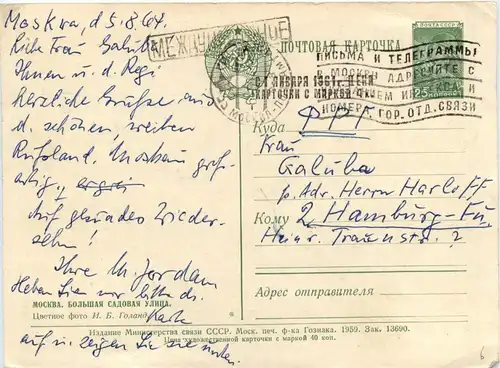 Moskau, d 5.8.64.
Frau
Ihnen u. d. Regi
herzliche Grüße aus
d. schönen, weiten
Rußland, Moskau groß-
artig,
Auf gesundes Wieder-
sehen!
Ihre M. Jordan
Heben Sie mir bitte d.
Karte
auf u. zeigen Sie sie
МОСКВА. БОЛЬШАЯ САДОВАЯ УЛИЦА.
Цветное фото И. Б. Голанд
МЕЖДУНАРОДНОЕ
ПОЧТОВАЯ КАРТОЧКА
ПОЧТА СССР
25
ПИСЬМА И ТЕЛЕГРАММЫ
В МОСКВУ АДРЕСУЙТЕ С
НОМЕРА ГОР. ОТД. СВЯЗИ
С 1 ЯНВАРЯ 1961 г. ЦЕНА
КАРТОЧКИ С МАРКОЙ 4 КОП.
МОСКВА
Куда
Frau
Galuba
p. Adr. Herrn Harloff
Кому 2 Hamburg-Fu.
Heinr. Traunstr. 2
Адрес отправителя
Издание Министерства связи СССР. Моск. печ. ф-ка Гознака. 1959. Зак. 13690.
Цена художественной карточки с маркой 40 коп.